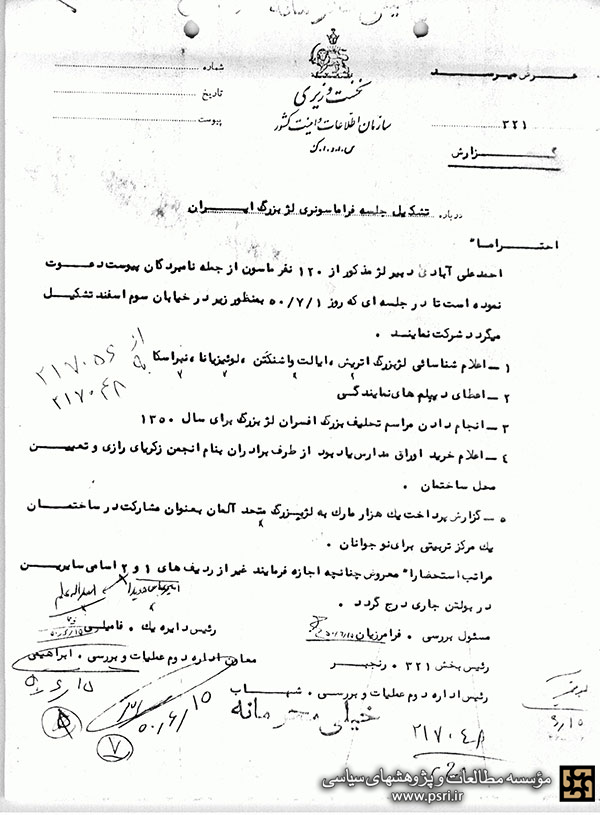 شماره
تاریخ
پیوست
نخست وزیری
سازمان اطلاعات و امنیت کشور
س.ا.و.ا.ک
بعرض میرسد
۳۲۱
گزارش
درباره تشکیل جلسه فراماسونری لژ بزرگ ایران
احتراما"
احمدعلی آبادی دبیر لژ مذکور از ۱۲۰ نفر ماسون از جمله نامبردگان پیوست دعوت
نموده است تا در جلسه ای که روز ۵۰/۷/۱ بمنظور زیر در خیابان سوم اسفند تشکیل
میگردد شرکت نمایند .
۱ – اعلام شناسائی لژ بزرگ اتریش ، ایالت واشنگتن ، لوئیزیانا ، نبراسکا
۲ – اعطای دیپلم های نمایندگی
۳ – انجام دادن مراسم تحلیف بزرگ افسران لژ بزرگ برای سال ۱۳۵۰
۴ – اعلام خرید اوراق مدارس یادبود از طرف برادران بنام انجمن زکریای رازی و تعیین
محل ساختمان .
۵ – گزارش پرداخت یک هزار مارک به لژ بزرگ متحد آلمان بعنوان مشارکت در ساختمان
یک مرکز تربیتی برای نوجوانان .
مراتب استحضارا" معروض چنانچه اجازه فرمایند غیر از ردیف های ۱ و ۲ اسامی سایرین
در بولتن جاری درج گردد .
امیرعباس هویدا اسداله علم
مسئول بررسی . فرامرزیان ۵۰/۶/۱۵
رئیس دایره یک . فامیلی
رئیس بخش ۳۲۱ . رنجبر
معاون اداره دوم عملیات و بررسی . ابراهیمی
رئیس اداره دوم عملیات و بررسی . شهاب
۵۰/۶/۱۵
خیلی محرمانه
از ۲۱۷۰۵۶
به ۲۱۷۰۴۸
۲۱۷۰۴۸
۷
مؤسسه مطالعات و پژوهشهای سیاسی
www.psri.ir